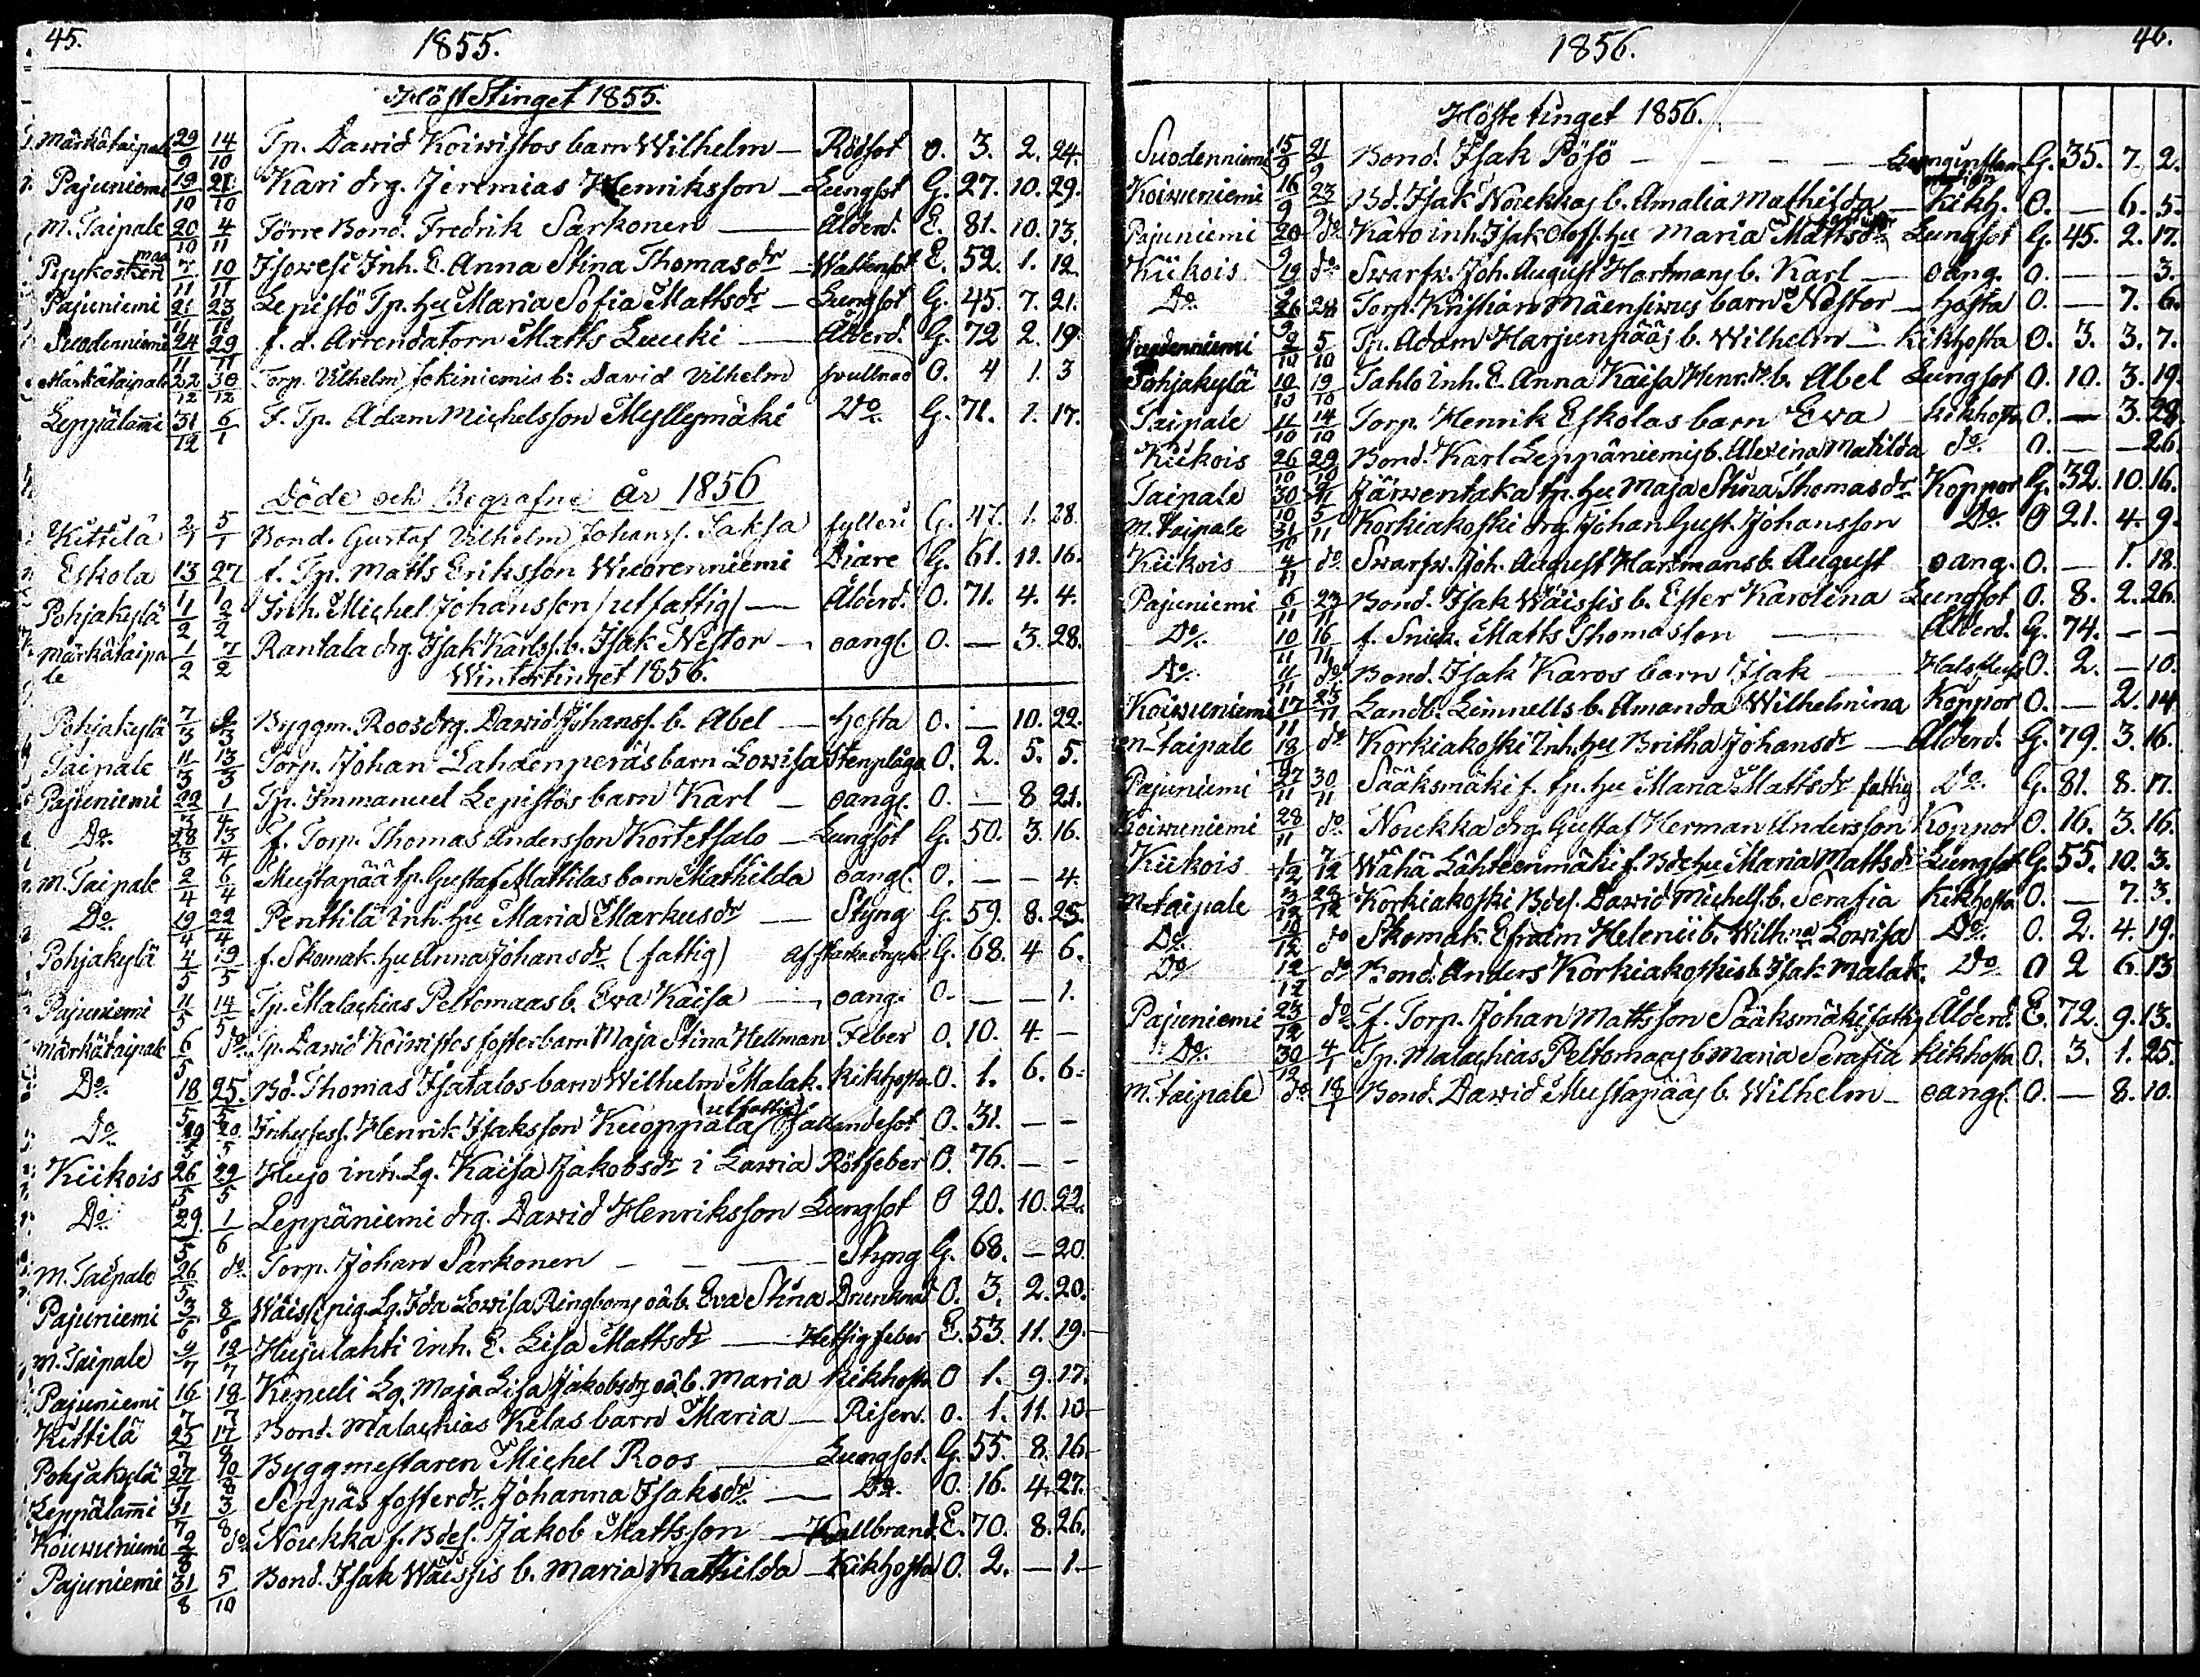 45.
1855.
HöstStinget 1855.
Märkätaipale 29/9 14/10 Tp. Dawid Koiwistos barn Wilhelm — Rödsot O. 3. 2. 24.
Pajuniemi 19/10 21/10 Kari drg. Jeremias Henriksson — Lungsot G. 27. 10. 29.
M. Taipale 20/10 4/11 Förre Bond. Fredrik Sarkonen — Ålderd. E. 81. 10. 13.
7/11 10/11 Isowesi Inh. E. Anna Stina Thomasdr — Wattensot E. 52. 1. 12.
Pajuniemi 21/11 23/11 Lepistö Tp. hu Maria Sofia Mattsdr — Lungsot G. 45. 7. 21.
Suodenniemi 24/11 29/11 f. d. Arrendatorn Matts Luuki — Ålderd. G. 72 2. 19.
Märkätaipale 22/12 30/12 Torp. Vilhelm Jokiniemis b. David Vilhelm O. 4 1. 3
Leppälam̄i 31/12 6/1 F. Tp. Adam Michelsson Myllymäki Do G. 71. 1. 17.
Döde och Begrafne år 1856
Kittilä 2/1 5/1 Bond. Gustaf Vilhelm Johanss. Saksa fylleri G. 47. 1. 28.
Eskola 13/1 27/1 f. Tp. Matts Eriksson Wuorenniemi Diare G. 61. 11. 16.
Pohjakylä 1/2 2/2 Inh. Michel Johansson (utfattig) — Ålderd. O. 71. 4. 4.
Märkätaipale 1/2 7/2 Rantala drg. Isak Karlss. b. Isak Nestor — oangf. O. — 3. 28.
Wintertinget 1856.
Pohjakylä 7/3 9/3 Byggm. Roos drg. Dawid Johanss. b. Abel — Hosta O. — 10. 22.
Taipale 11/3 13/3 Torp. Johan Lahdenperäs barn Lowisa Stenplåga O. 2. 5. 5.
Pajuniemi 22/3 1/4 Tp. Immanuel Lepistös barn Karl — oangf. O. — 8 21.
Do. 28/3 13/4 f. Torp. Thomas Andersson Kortetsalo — Lungsot G. 50. 3. 16.
M. Taipale 2/4 6/4 Mustapää tp. Gustaf Mattilas barn Mathilda oangf. O. — — 4.
Do. 19/4 22/4 Penttilä Inh. hu Maria Markusdr — Styng G. 59. 8. 25.
Pohjakylä 4/5 19/5 f. Skomak. hu Anna Johansdr. (fattig) G. 68. 4 6.
Pajuniemi 11/5 14/5 Tp. Malachias Peltomaas b. Eva Kaisa — oang. O. — — 1.
Märkätaipale 6/5 do. Tp. Dawid Koiwistos fosterbarn Maja Stina Hellman Feber O. 10. 4. —
Do. 18/5 25/5 Bd. Thomas Isatalos barn Wilhelm Malak. Kikhosta O. 1. 6. 6.
Do. 20/5 Inhyses. Henrik Isaksson Kuoppala (utfattig) fallandesot O. 31. — —
Kiikois 26/5 29/5 Hujo inh. Lg. Kaisa Jakobsdr i Lawia Rötfeber O. 76. — —
Do. 29/5 1/6 Leppäniemi drg. Dawid Henriksson Lungsot O 20. 10. 22.
M. Taipale 26/5 do. Torp. Johan Sarkonen — Styng G. 68. — 20.
Pajuniemi 3/6 8/6 Wäissi pig. Lg. Ida Lowisa Ringboms oäb. Eva Stina Drunknad O. 3. 2. 20.
M. Taipale 9/7 12/7 Hujulahti inh. E. Lisa Mattsdr — Hetsig feber E. 53. 11. 19.
Pajuniemi 16/7 18/7 Lg. Maja Lisa Jakobsdrs oäb. Maria Kikhosta O 1. 9. 17.
Kittilä 25/7 17/8 Bond. Malachias Kilas barn Maria — Risen. O. 1. 11. 10
Pohjakylä 27/7 10/8 Byggmestaren Michel Roos — Lungsot. G. 55. 8. 16
Leppälam̄i 31/7 3/8 Seppäs fosterdr. Johanna Isaksdr. — Do. O. 16. 4. 27.
Koiwuniemi 2/8 do. Noukka f. Bdes. Jakob Mattsson — Kallbrand. E. 70. 8. 26.
Pajuniemi 31/8 5/10 Bond. Isak Wäissis b. Maria Mathilda — Kikhosta O. 2. — 1.
46.
1856.
Höstetinget 1856.
Suodenniemi 15/9 21/9 Bond. Isak Pösö — G. 35. 7. 2.
Koiwuniemi 16/9 23/9 Bd. Isak Noukkas b. Amalia Mathilda — Kikh. O. — 6. 5.
Pajuniemi 20/9 do Karo inh. Isak Olofs. hu Maria Mattsdr Lungsot G. 45. 2. 17.
Kiikois 19/9 do Swarfw. Joh. August Hartmans b. Karl — oang. O. — — 3.
Do. 26/9 28 Torp. Kristian Mäensiwus barn Nestor — Hosta O. — 7. 6.
Suodenniemi 2/10 5/10 Tp. Adam Harjunpääs b. Wilhelm — Kikhosta O. 3. 3. 7.
Pohjakylä 10/10 19/10 Tahlo Inh. E. Anna Kaisa Henr.dr b. Abel Lungsot O. 10. 3. 19.
Taipale 11/10 14/10 Torp. Henrik Eskolas barn Ewa Kikhosta O. — 3. 28.
Kiikois 26/10 29/10 Bond. Karl Leppäniemis b. Alexina Matilda do. O. — — 26.
Taipale 30/10 Järwentaka tp. hu Maja Stina Thomasdr Koppor G. 32. 10. 16.
M. taipale 31/10 5/11 Korkiakoski drg. Johan Gust. Johansson Do. O 21. 4. 9.
Kiikois 4/11 do Swarfw. Joh. August Hartmans b. August oang. O. — 1. 18.
Pajuniemi 6/11 23/11 Bond. Isak Wäissis b. Ester Karolina Lungsot O. 8. 2. 26.
Do. 10/11 16/11 f. Snick. Matts Thomasson — Ålderd. G. 74. — —
Do. 11/11 do. Bond. Isak Karos barn Isak — O. 2. — 10.
Koiwuniemi 17/11 25/11 Landb. Limnells b. Amanda Wilhelmina Koppor O. — 2. 14
m taipale 18/11 do Korkiakoski Inh. hu Britha Johansdr — Ålderd. G. 79. 3. 16.
Pajuniemi 27/11 30/11 Sääksmäki f. tp. hu Maria Mattsdr fattig Do. G. 81. 8. 17.
Koiwuniemi 28/11 do. Noukka drg. Gustaf Herman Andersson Koppor O. 16. 3. 16.
Kiikois 1/12 7/12 Wähä Lähteenmäki f. Bde hu Maria Mattsdr Lungsot G. 55. 10. 3.
M. taipale 3/12 28/12 Korkiakoski Bdes. Dawid Michels. b. Serafia Kikhosta O. — 7. 3.
Do. 10/12 do Skomak. Efraim Helenii b. Wilh.na Lowisa Do. O. 2. 4. 19.
Do 12/12 do Bond. Anders Korkiakoskis b. Isak Malak. Do O 2 6. 13
Pajuniemi 23/12 do. f. Torp. Johan Mattsson Sääksmäki fattig Ålderd. E. 72. 9. 13.
Do. 30/12 4/1 Tp. Malachias Peltomaas b Maria Serafia Kikhosta O. 3. 1. 25.
M. taipale do 18/1 Bond. Dawid Mustapääs b. Wilhelm — oangf. O. — 8. 10.